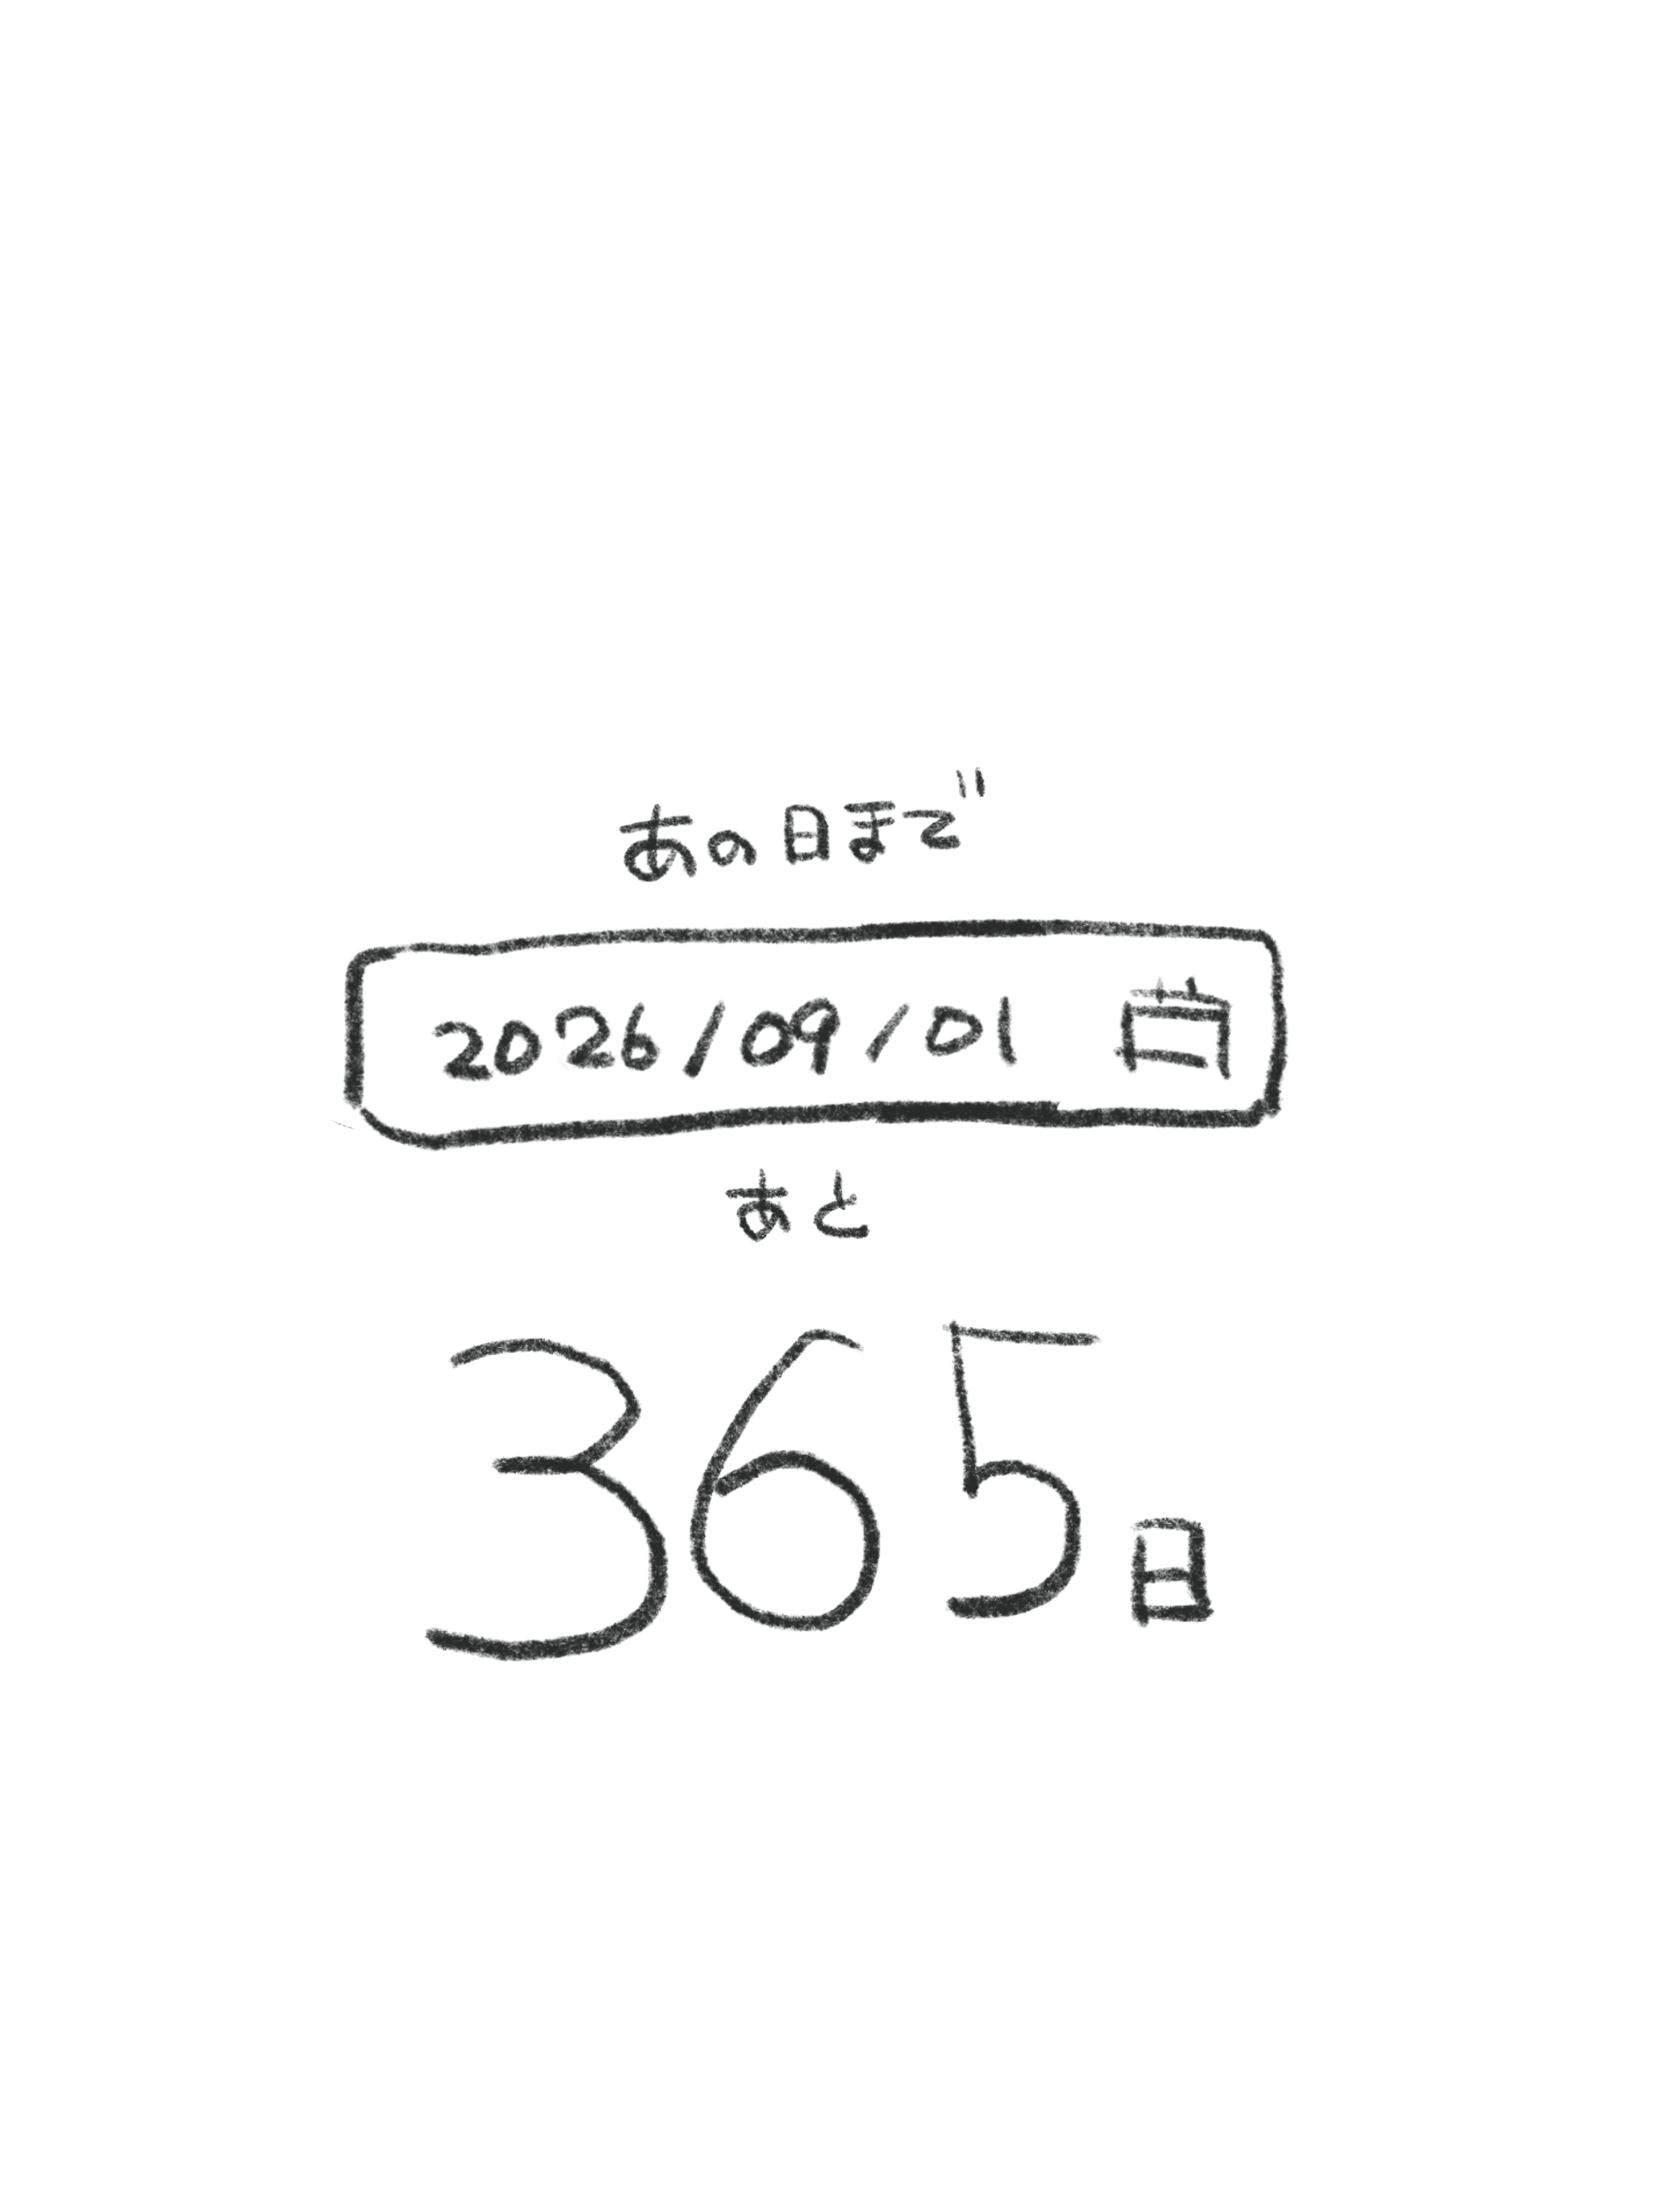 あの日まで
2026/09/01
あと
365日